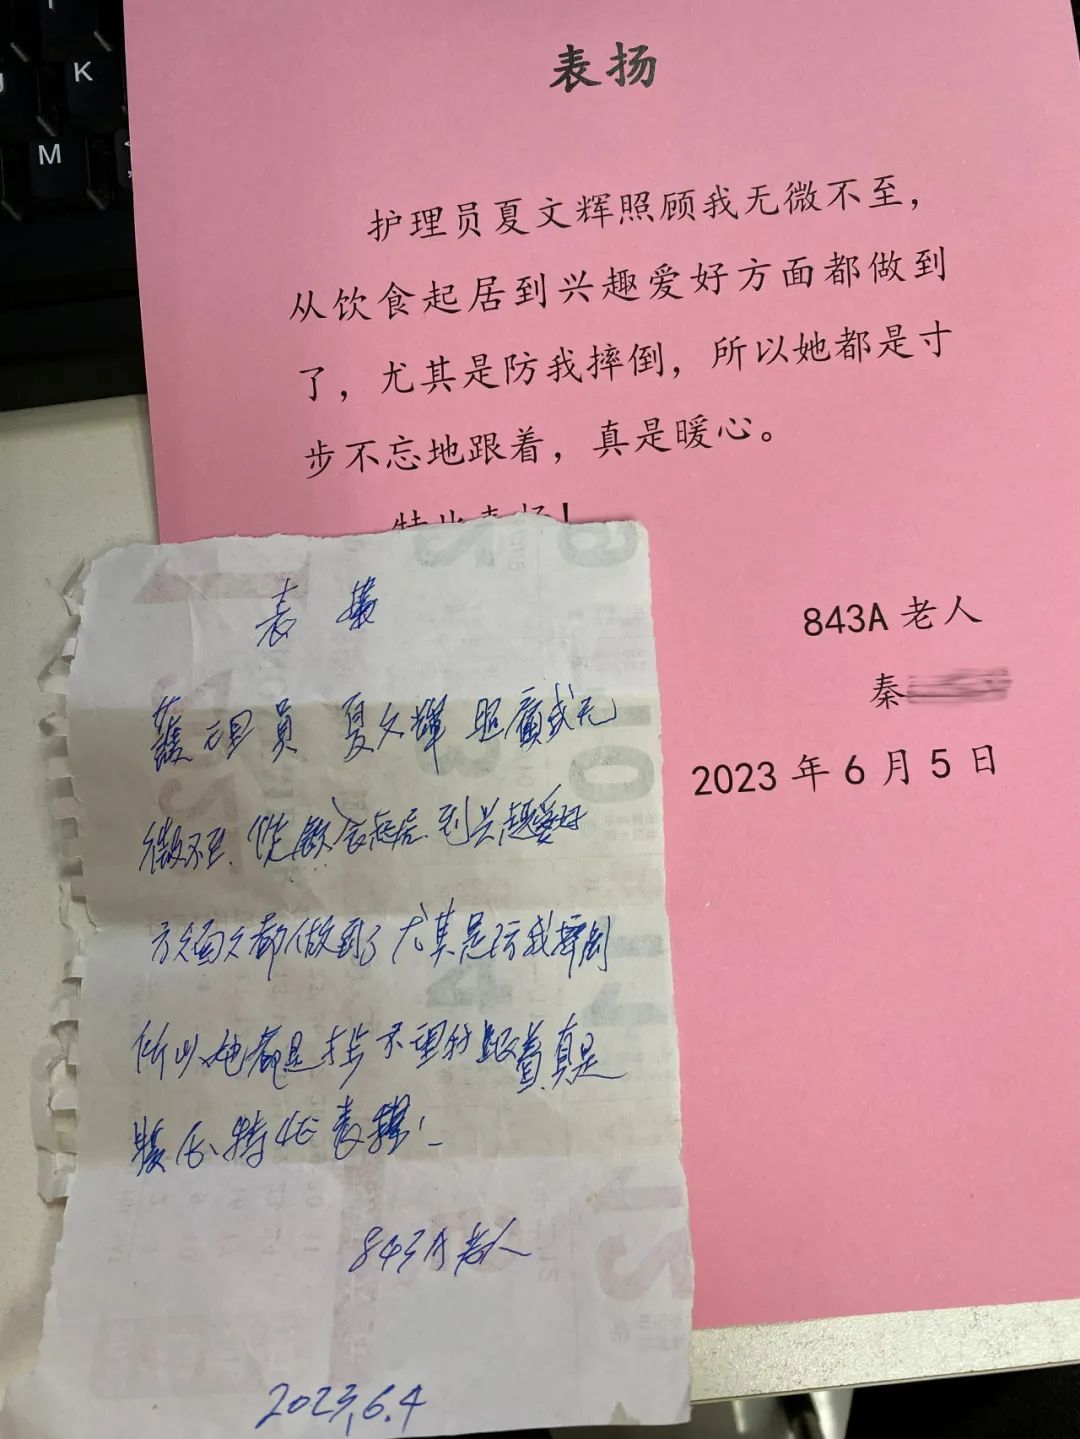 K
M
表扬
护理员夏文辉照顾我无微不至，
从饮食起居到兴趣爱好方面都做到
了，尤其是防我摔倒，所以她都是寸
步不忘地跟着，真是暖心。
特此表扬！
843A 老人
秦
2023 年 6 月 5 日
表 揚
護理員 夏文輝 照顧我无
微不至、从飲食起居到兴趣爱好
方面都做到了尤其是防我摔倒
所以她都是寸步不理的跟着真是
暖心、特此表揚！
843A老人
2023.6.4